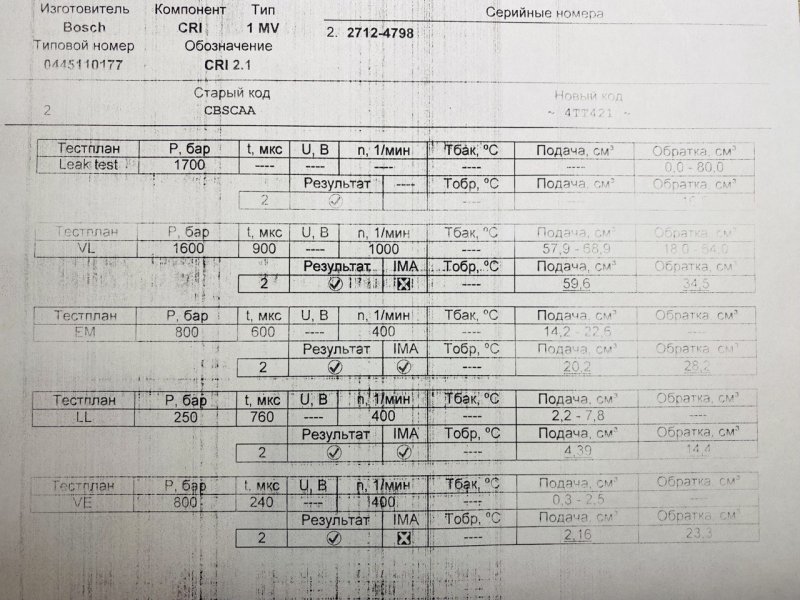 Изготовитель Компонент Тип Серийные номера
Bosch CRI 1 MV 2. 2712-4798
Типовой номер Обозначение
0445110177 CRI 2.1
Старый код Новый код
2 CBSCAA ~ 4TT421 ~
Тестплан P, бар t, мкс U, B n, 1/мин Тбак, ºC Подача, см³ Обратка, см³
Leak test 1700 ---- ---- ---- ---- ---- 0,0 - 80,0
Результат ---- Тобр, ºC Подача, см³ Обратка, см³
2 ----
Тестплан P, бар t, мкс U, B n, 1/мин Тбак, ºC Подача, см³ Обратка, см³
VL 1600 900 ---- 1000 ---- 57,9 - 68,9 18,0 - 54,0
Результат IMA Тобр, ºC Подача, см³ Обратка, см³
2 ---- 59,6 34,5
Тестплан P, бар t, мкс U, B n, 1/мин Тбак, ºC Подача, см³ Обратка, см³
EM 800 600 ---- 400 ---- 14,2 - 22,6 ----
Результат IMA Тобр, ºC Подача, см³ Обратка, см³
2 ---- 20,2 28,2
Тестплан P, бар t, мкс U, B n, 1/мин Тбак, ºC Подача, см³ Обратка, см³
LL 250 760 ---- 400 ---- 2,2 - 7,8 ----
Результат IMA Тобр, ºC Подача, см³ Обратка, см³
2 ---- 4,39 14,4
Тестплан P, бар t, мкс U, B n, 1/мин Тбак, ºC Подача, см³ Обратка, см³
VE 800 240 ---- 400 ---- 0,3 - 2,5 ----
Результат IMA Тобр, ºC Подача, см³ Обратка, см³
2 ---- 2,16 23,3